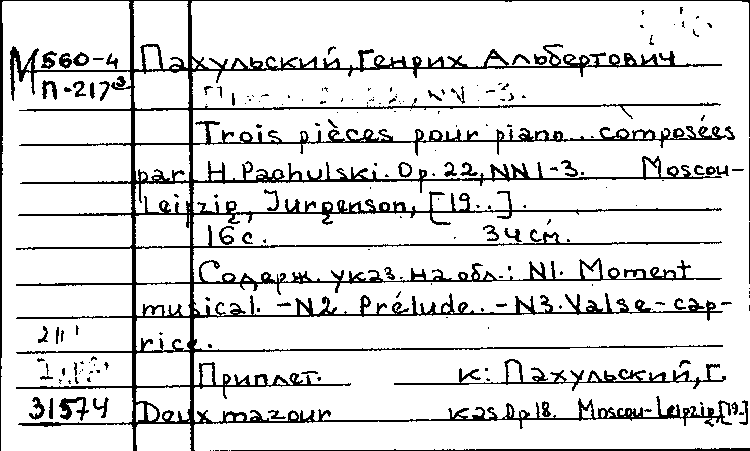 М 560-4 Пахульский, Генрих Альбертович
П-217³
NN -3.
Trois pièces pour piano.. composées
par H. Pachulski. Op. 22, NN 1-3. Moscou-
Leipzig, Jurgenson, [19..].
16 с. 34 см.
Содерж. указ. на обл.: N1. Moment
musical. -N2. Prélude.. -N3. Valse-cap-
rice.
Приплет. к: Пахульский, Г.
31574 Deux mazourkas Op 18. Moscou-Leipzig, [19..]